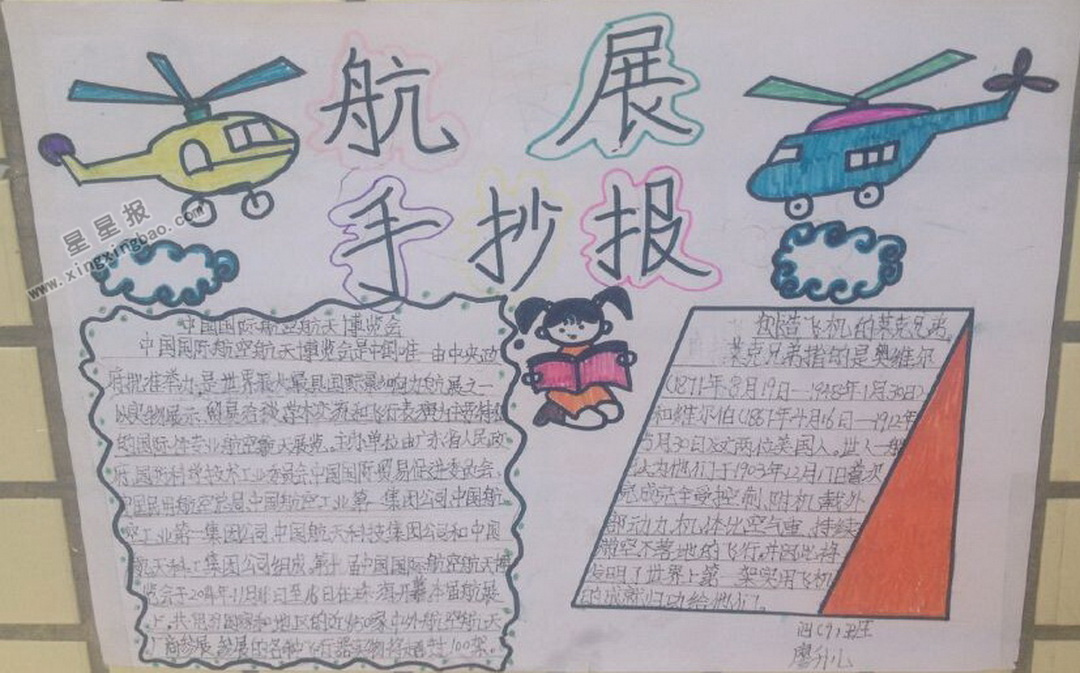 航展
手抄报
星星报
www.xingxingbao.com
中国国际航空航天博览会
中国国际航空航天博览会是中国唯一由中央政
府批准举办,是世界最大最具国际影响力航展之一
以实物展示、贸易洽谈、学术交流和飞行表演为主要特征
的国际性专业航空航天展览。主办单位由广东省人民政
府、国防科学技术工业委员会、中国国际贸易促进委员会、
中国民用航空总局、中国航空工业第一集团公司、中国航
空工业第一集团公司、中国航天科技集团公司和中国
航天科工集团公司组成。第十届中国国际航空航天博
览会于2014年11月11日至16日在珠海开幕。本届航展
上,共
国家和地区的近
家中外航空航天
厂商参展,参展的各种飞行器实物将超过100架。
创造飞机的莱克兄弟
莱克兄弟指的是奥维尔
(1871年8月19日—1948年1月30日)
和维尔伯(1867年4月16日—1912年
5月30日)这两位美国人。世人一般
认为他们于1903年12月17日首次
完成完全受控制、附机载外
部动力、机体比空气重、持续
滞空不落地的飞行,并因此将
发明了世界上第一架实用飞机
的成就归功给他们。
四(9)班
廖